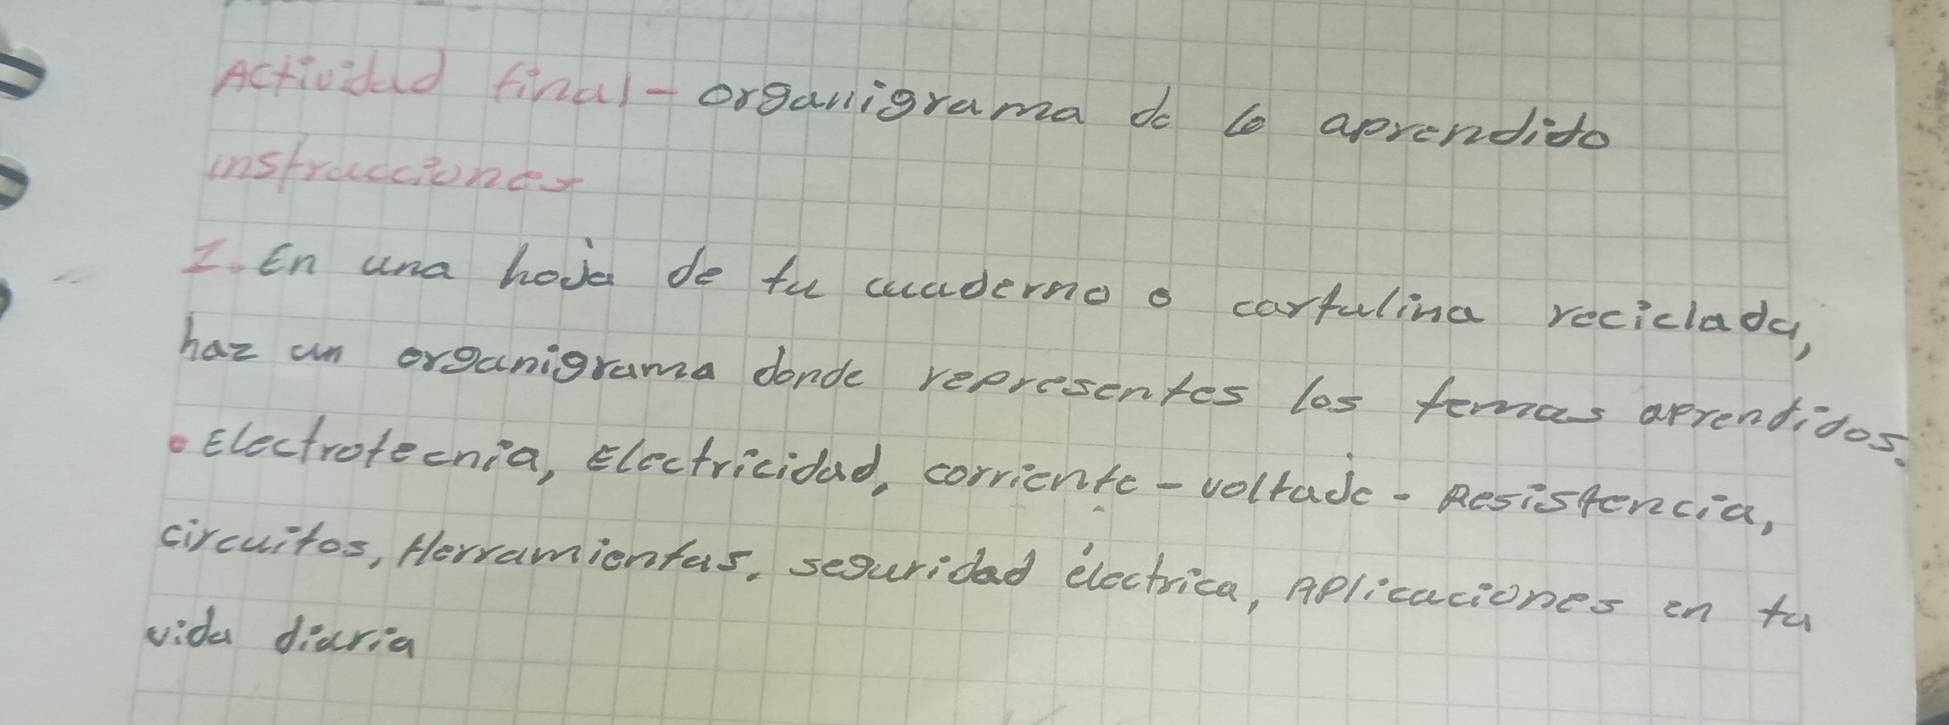 Actividad final - organigrama de lo aprendido
instrucciones
1. En una hoja de tu cuaderno o cartulina reciclada,
haz un organigrama donde representes los temas aprendidos.
• Electrotecnia, Electricidad, corriente - voltaje - Resistencia,
circuitos, Herramientas, seguridad électrica, Aplicaciones en tu
vida diaria